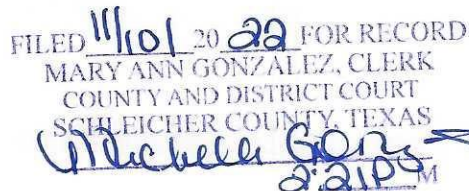 FILED 11/10/ 20 22 FOR RECORD
MARY ANN GONZALEZ, CLERK
COUNTY AND DISTRICT COURT
SCHLEICHER COUNTY, TEXAS
Michelle
2:21P M